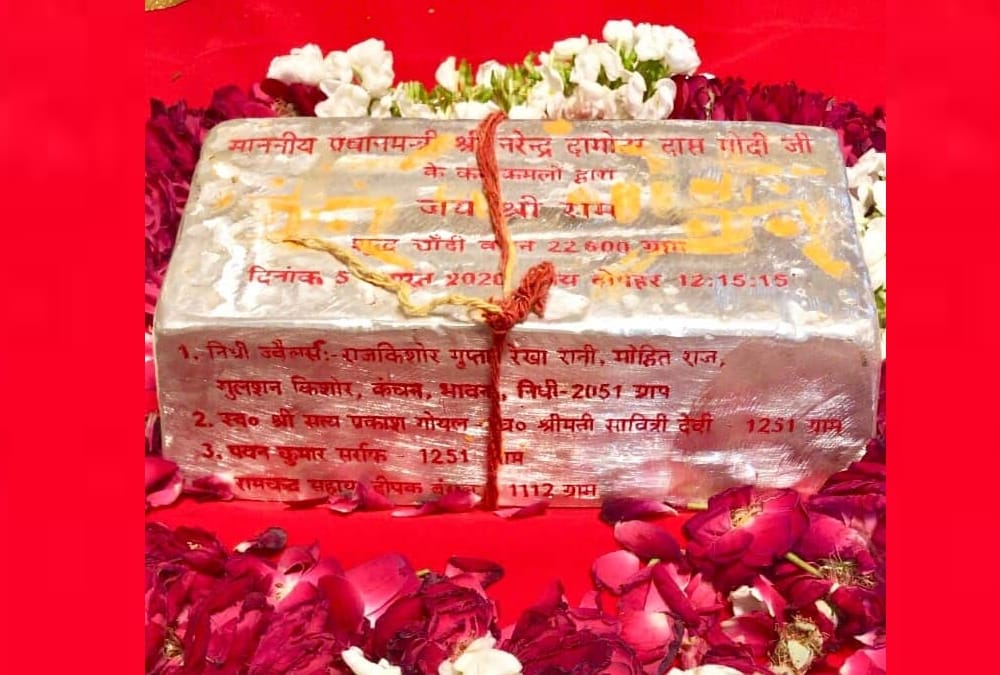 माननीय प्रधानमन्त्री श्री नरेन्द्र दामोदर दास मोदी जी
के कर कमलो द्वारा
जय श्री राम
शुद्ध चाँदी वजन 22.600 ग्राम
दिनांक 5 अगस्त 2020 समय दोपहर 12:15:15
1. निधी ज्वैलर्स:-राजकिशोर गुप्ता, रेखा रानी, मोहित राज,
गुलशन किशोर, कंचन, भावना, निधी-2051 ग्राम
2. स्व० श्री सत्य प्रकाश गोयल - स्व० श्रीमती सावित्री देवी - 1251 ग्राम
3. पवन कुमार सर्राफ - 1251 ग्राम
रामचन्द्र सहाय दीपक 1112 ग्राम